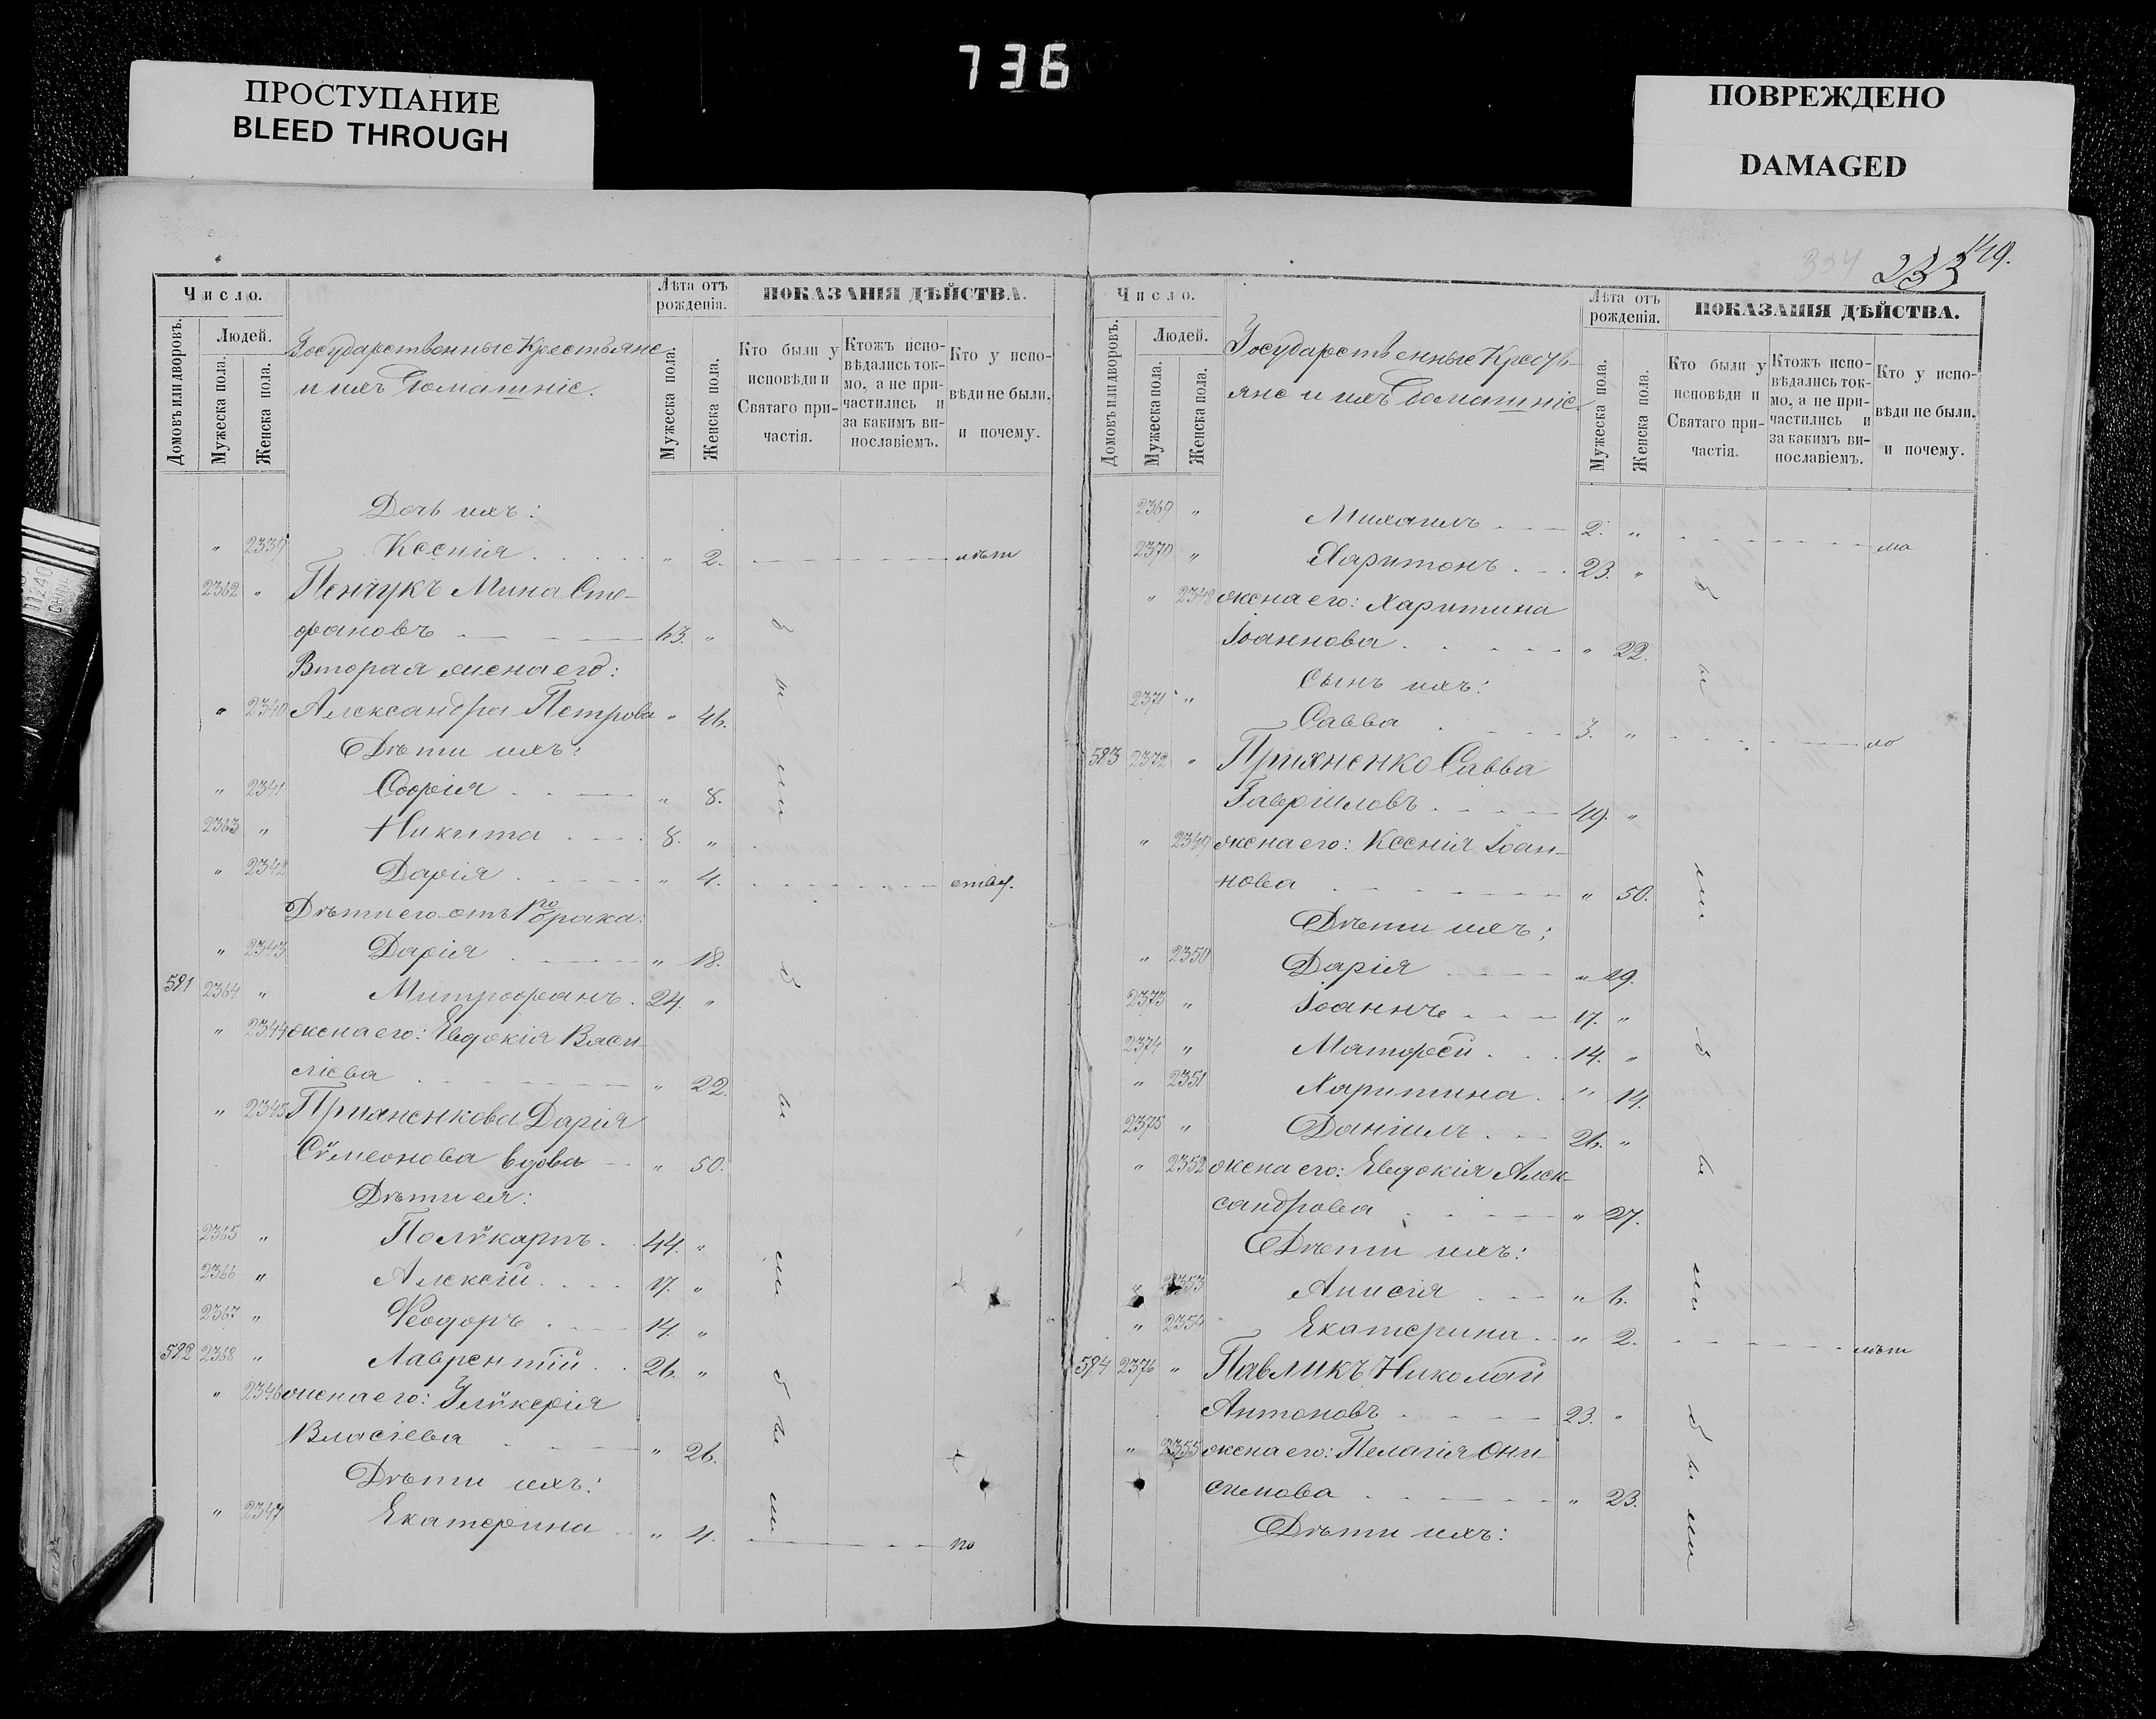 736
ПРОСТУПАНИЕ
BLEED THROUGH
ПОВРЕЖДЕНО
DAMAGED
Число.
Домовъ или дворовъ.
Людей.
Мужеска пола.
Женска пола.
Государственные Крестьяне
и ихъ домашніе.
Лѣта отъ
рожденія.
Мужеска пола.
Женска пола.
ПОКАЗАНІЯ ДѢЙСТВА.
Кто были у
исповѣди и
Святаго при-
частія.
Ктожъ испо-
вѣдались ток-
мо, а не при-
частились и
за какимъ ви-
нославіемъ.
Кто у испо-
вѣди не были.
и почему.
Дочь ихъ:
" 2339 Ксенія " 2. лѣт
2362 " Пенчукъ Мина Сте-
фановъ 63. "
Вторая жена его:
" 2340 Александра Петрова " 46.
Дѣти ихъ:
" 2341 Софія " 8.
2363 " Никита 8. "
" 2342 Дарія " 4.
Дѣти его отъ 1го брака:
" 2343 Дарія " 18.
581 2364 " Митрофанъ 24. "
" 2344 жена его: Евдокія Васи-
лієва " 22.
" 2345 Прихненкова Дарія
Сѵмеонова вдова " 50.
Дѣти ея:
2365 " Полѵкарпъ 44. "
2366 " Алексій 17. "
2367 " Ѳеодоръ 14. "
582 2368 " Лаврентій 26. "
" 2346 жена его: Глѵкерія
Власіева " 26.
Дѣти ихъ:
" 2347 Екатерина " 4. по
334 233 149.
Число.
Домовъ или дворовъ.
Людей.
Мужеска пола.
Женска пола.
Государственные Кресть-
яне и ихъ домашніе.
Лѣта отъ
рожденія.
Мужеска пола.
Женска пола.
ПОКАЗАНІЯ ДѢЙСТВА.
Кто были у
исповѣди и
Святаго при-
частія.
Ктожъ испо-
вѣдались ток-
мо, а не при-
частились и
за какимъ ви-
нославіемъ.
Кто у испо-
вѣди не были.
и почему.
2369 " Михаилъ 2. " ма
2370 " Харитонъ 23. "
" 2348 жена его: Харитина
Іоаннова " 22.
Сынъ ихъ:
2371 " Савва 3. " ло
583 2372 " Прихненко Савва
Гавріиловъ 49. "
" 2349 жена его: Ксенія Іоан-
нова " 50.
Дѣти ихъ:
" 2350 Дарія " 19.
2373 " Іоаннъ 17. "
2374 " Матфей 14. "
" 2351 Харитина " 14.
2375 " Даніилъ 26. "
" 2352 жена его: Евдокія Алек-
сандрова " 27.
Дѣти ихъ:
" 2353 Анисія " 6.
" 2354 Екатерина " 2. лѣт
584 2376 " Павликъ Николай
Антоновъ 23. "
" 2355 жена его: Пелагія Они-
симова " 23.
Дѣти ихъ: